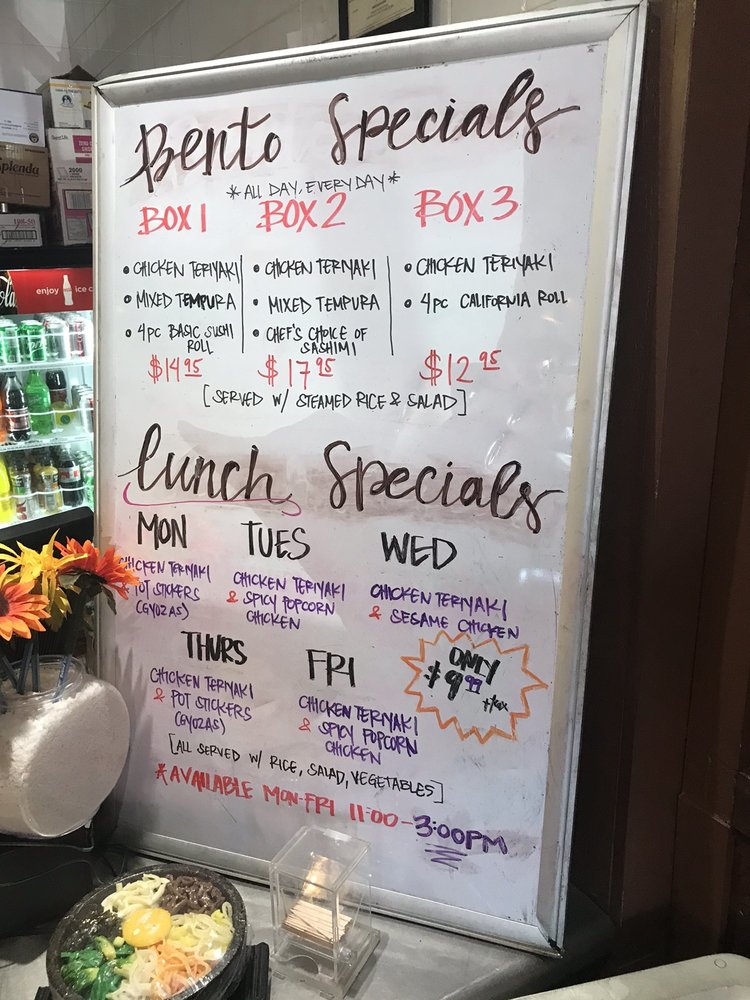 Bento Specials
*ALL DAY, EVERYDAY*
BOX 1
• CHICKEN TERIYAKI
• MIXED TEMPURA
• 4PC BASIC SUSHI
ROLL
$14.95
BOX 2
• CHICKEN TERIYAKI
MIXED TEMPURA
• CHEF'S CHOICE OF
SASHIMI
$17.95
BOX 3
• CHICKEN TERIYAKI
• 4PC CALIFORNIA ROLL
$12.95
[SERVED W/ STEAMED RICE & SALAD]
Lunch Specials
MON
CHICKEN TERIYAKI
POT STICKERS
(GYOZAS)
TUES
CHICKEN TERIYAKI
& SPICY POPCORN
CHICKEN
WED
CHICKEN TERIYAKI
& SESAME CHICKEN
THURS
CHICKEN TERIYAKI
& POT STICKERS
(GYOZAS)
FRI
CHICKEN TERIYAKI
& SPICY POPCORN
CHICKEN
ONLY
$9.99
+tax
[ALL SERVED W/ RICE, SALAD, VEGETABLES]
*AVAILABLE MON-FRI 11:00-3:00PM
Splenda
enjoy
ice c